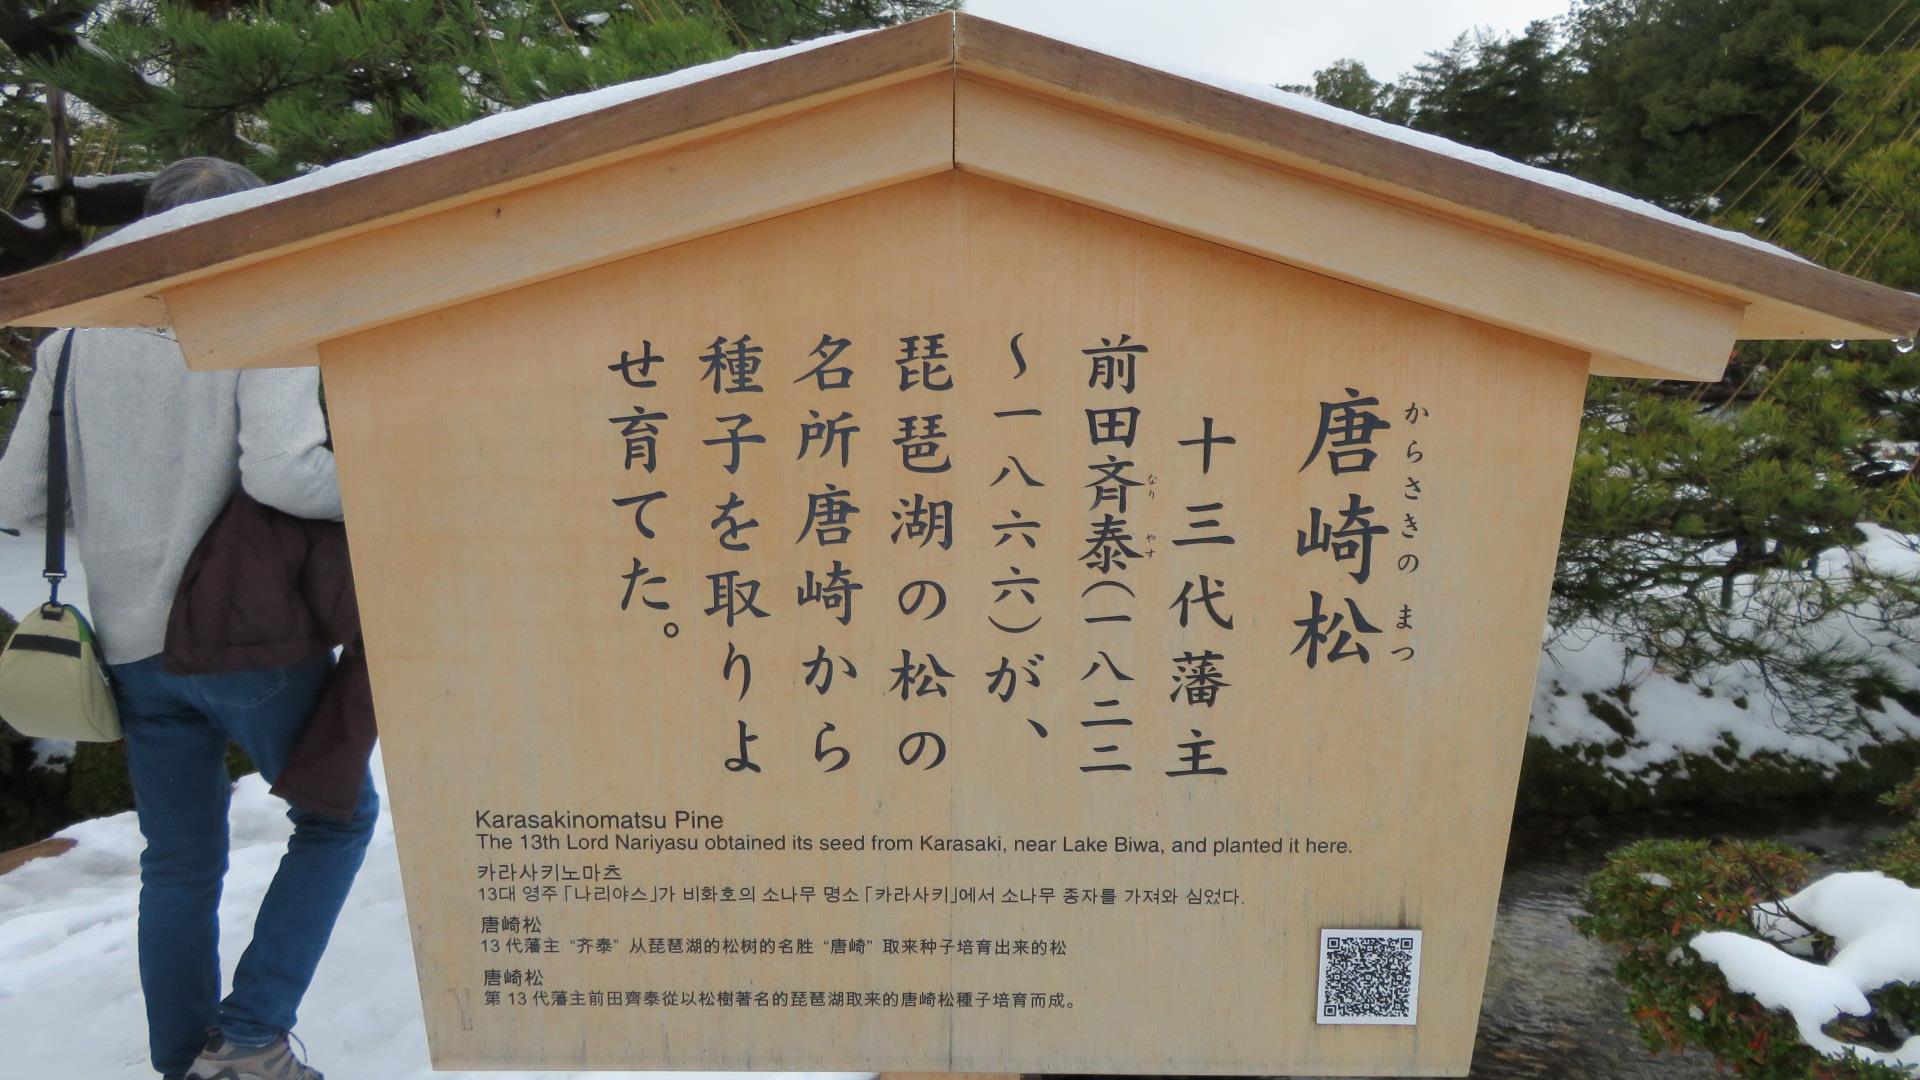 唐崎松
からさきの まつ
十三代藩主
前田斉泰(一八二二
なり やす
~一八六六)が、
琵琶湖の松の
名所唐崎から
種子を取りよ
せ育てた。
Karasakinomatsu Pine
The 13th Lord Nariyasu obtained its seed from Karasaki, near Lake Biwa, and planted it here.
카라사키노마츠
13대 영주「나리야스」가 비화호의 소나무 명소「카라사키」에서 소나무 종자를 가져와 심었다.
唐崎松
13 代藩主 “齐泰” 从琵琶湖的松树的名胜 “唐崎” 取来种子培育出来的松
唐崎松
第 13 代藩主前田齊泰從以松樹著名的琵琶湖取来的唐崎松種子培育而成。